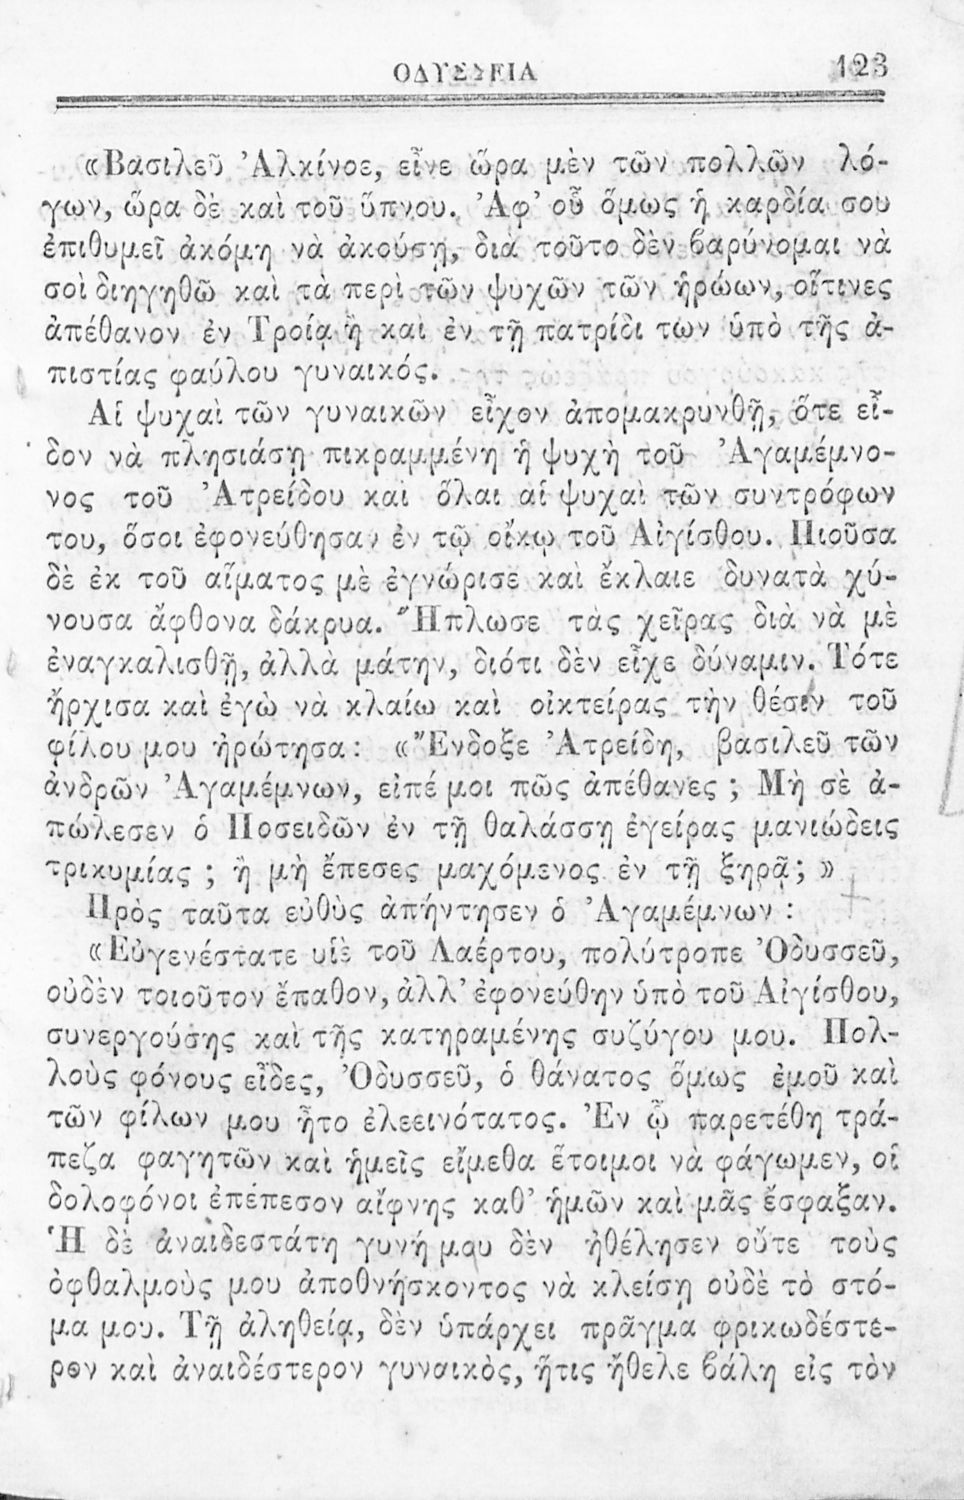 ΟΔΥΣΣΕΙΑ 123
«Βασιλεῦ Ἀλκίνοε, εἶνε ὥρα μὲν τῶν πολλῶν λό-
γων, ὥρα δὲ καὶ τοῦ ὕπνου. Ἀφ’ οὗ ὅμως ἡ καρδία σου
ἐπιθυμεῖ ἀκόμη νὰ ἀκούσῃ, διὰ τοῦτο δὲν βαρύνομαι νὰ
σοὶ διηγηθῶ καὶ τὰ περὶ τῶν ψυχῶν τῶν ἡρώων, οἵτινες
ἀπέθανον ἐν Τροίᾳ ἢ καὶ ἐν τῇ πατρίδι των ὑπὸ τῆς ἀ-
πιστίας φαύλου γυναικός.
Αἱ ψυχαὶ τῶν γυναικῶν εἶχον ἀπομακρυνθῇ, ὅτε εἶ-
δον νὰ πλησιάσῃ πικραμμένη ἡ ψυχὴ τοῦ Ἀγαμέμνο-
νος τοῦ Ἀτρείδου καὶ ὅλαι αἱ ψυχαὶ τῶν συντρόφων
του, ὅσοι ἐφονεύθησαν ἐν τῷ οἴκῳ τοῦ Αἰγίσθου. Πιοῦσα
δὲ ἐκ τοῦ αἵματος μὲ ἐγνώρισε καὶ ἔκλαιε δυνατὰ χύ-
νουσα ἄφθονα δάκρυα. Ἥπλωσε τὰς χεῖρας διὰ νὰ μὲ
ἐναγκαλισθῇ, ἀλλὰ μάτην, διότι δὲν εἶχε δύναμιν. Τότε
ἤρχισα καὶ ἐγὼ νὰ κλαίω καὶ οἰκτείρας τὴν θέσιν τοῦ
φίλου μου ἠρώτησα: «Ἔνδοξε Ἀτρείδη, βασιλεῦ τῶν
ἀνδρῶν Ἀγαμέμνων, εἰπέ μοι πῶς ἀπέθανες ; Μὴ σὲ ἀ-
πώλεσεν ὁ Ποσειδῶν ἐν τῇ θαλάσσῃ ἐγείρας μανιώδεις
τρικυμίας ; ἢ μὴ ἔπεσες μαχόμενος ἐν τῇ ξηρᾷ; »
Πρὸς ταῦτα εὐθὺς ἀπήντησεν ὁ Ἀγαμέμνων :
«Εὐγενέστατε υἱὲ τοῦ Λαέρτου, πολύτροπε Ὀδυσσεῦ,
οὐδὲν τοιοῦτον ἔπαθον, ἀλλ’ ἐφονεύθην ὑπὸ τοῦ Αἰγίσθου,
συνεργούσης καὶ τῆς κατηραμένης συζύγου μου. Πολ-
λοὺς φόνους εἶδες, Ὀδυσσεῦ, ὁ θάνατος ὅμως ἐμοῦ καὶ
τῶν φίλων μου ἦτο ἐλεεινότατος. Ἐν ᾧ παρετέθη τρά-
πεζα φαγητῶν καὶ ἡμεῖς εἴμεθα ἕτοιμοι νὰ φάγωμεν, οἱ
δολοφόνοι ἐπέπεσον αἴφνης καθ’ ἡμῶν καὶ μᾶς ἔσφαξαν.
Ἡ δὲ ἀναιδεστάτη γυνή μου δὲν ἠθέλησεν οὔτε τοὺς
ὀφθαλμοὺς μου ἀποθνήσκοντος νὰ κλείσῃ οὐδὲ τὸ στό-
μα μου. Τῇ ἀληθείᾳ, δὲν ὑπάρχει πρᾶγμα φρικωδέστε-
ρον καὶ ἀναιδέστερον γυναικὸς, ἥτις ἤθελε βάλῃ εἰς τὸν